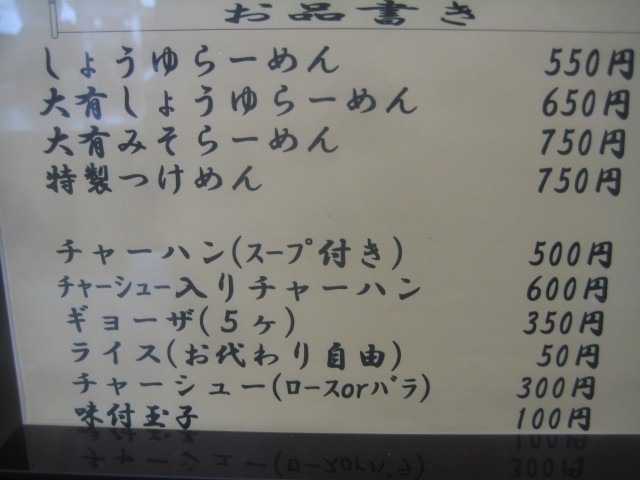 お品書き
しょうゆらーめん 550円
大有しょうゆらーめん 650円
大有みそらーめん 750円
特製つけめん 750円
チャーハン(スープ付き) 500円
チャーシュー入りチャーハン 600円
ギョーザ(5ヶ) 350円
ライス(お代わり自由) 50円
チャーシュー(ロースorバラ) 300円
味付玉子 100円